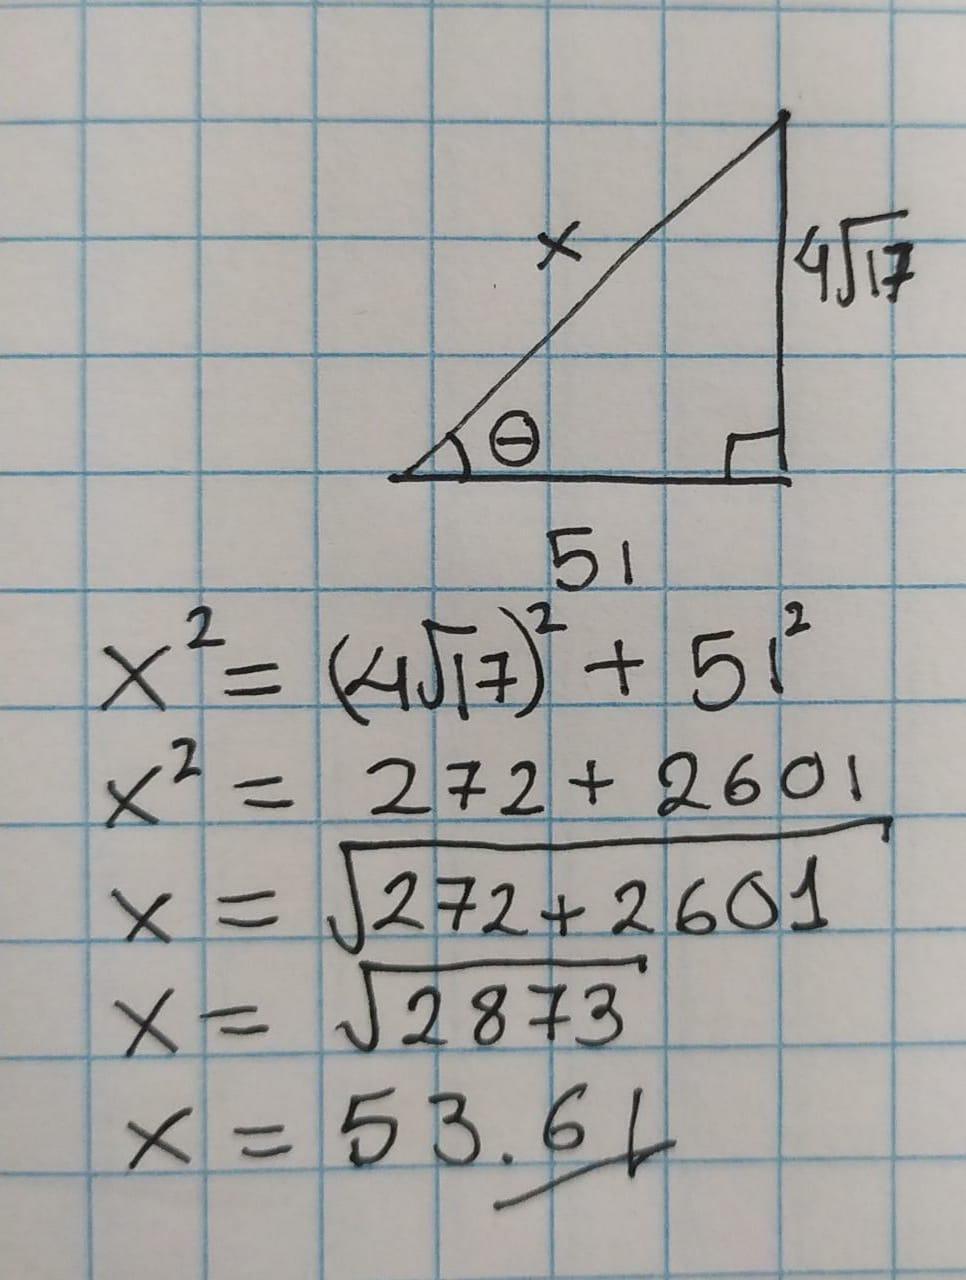 x
4√17
θ
51
x² = (4√17)² + 51²
x² = 272 + 2601
x = √272 + 2601
x = √2873
x = 53.61